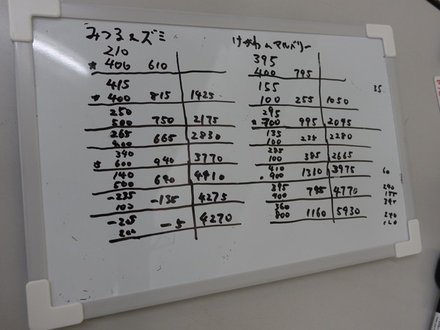 みつる&ズミ
210
*400 610
415
*400 815 1425
250
500 750 2175
265
400 665 2830
340
*600 940 3770
140
500 640 4410
-235
100 -135 4275
-205
200 -5 4270
けがわ&マルベリー
395
400 795
155
100 255 1050
295
*700 995 2045
135
100 235 2280
285
100 385 2665
410
*900 1310 3975
395
400 795 4770
360
800 1160 5930
60